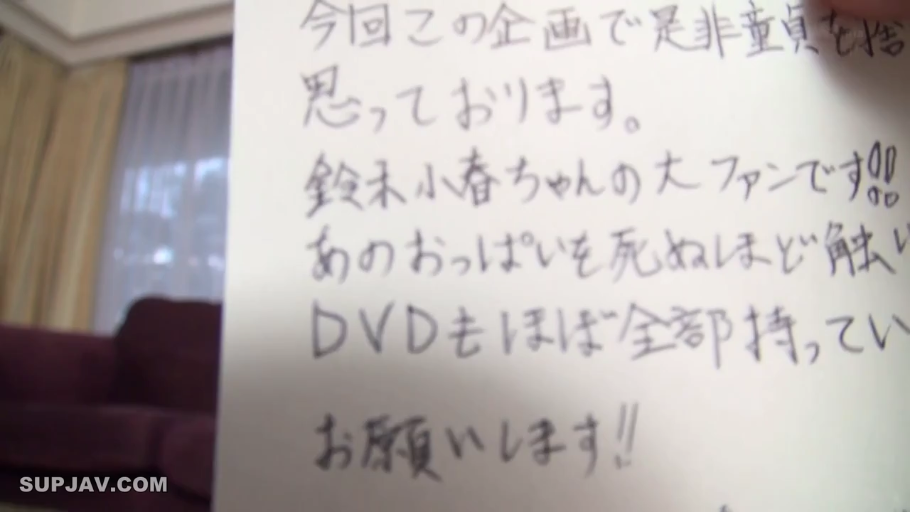 今回この企画で是非童貞を捨
思っております。
鈴木小春ちゃんの大ファンです!!
あのおっぱいを死ぬほど触い
DVDもほぼ全部持ってい
お願いします!!
SUPJAV.COM